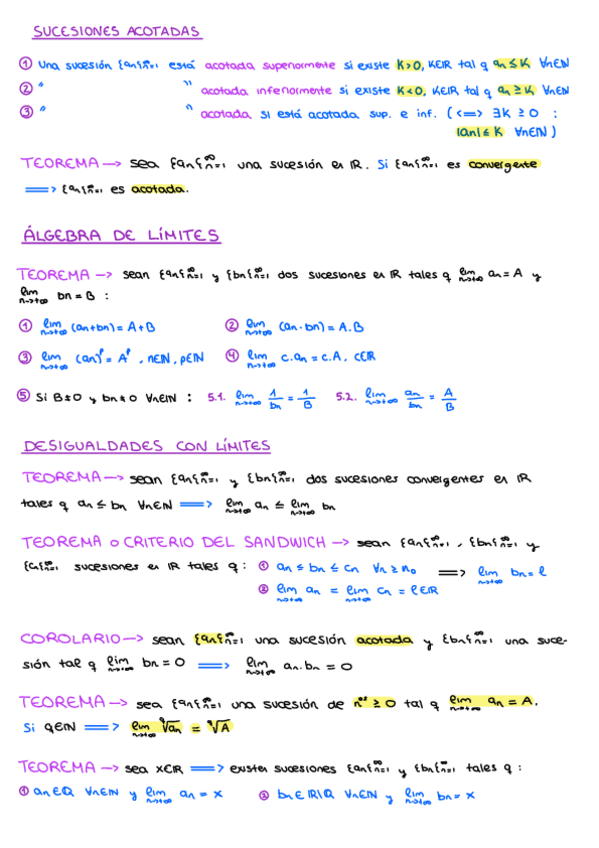 SUCESIONES ACOTADAS
① Una sucesión {an}∞n=1 está acotada superiormente si existe K>0, K∈IR tal q an ≤ K ∀n∈IN
② " " acotada inferiormente si existe K<0, K∈IR tal q an ≥ K ∀n∈IN
③ " " acotada si está acotada sup. e inf. ( <=> ∃K ≥ 0 :
|an| ≤ K ∀n∈IN )
TEOREMA —> sea {an}∞n=1 una sucesión en IR. Si {an}∞n=1 es convergente
==> {an}∞n=1 es acotada.
ÁLGEBRA DE LÍMITES
TEOREMA —> sean {an}∞n=1 y {bn}∞n=1 dos sucesiones en IR tales q lim n→+∞ an = A y
lim n→+∞ bn = B :
① lim n→+∞ (an+bn) = A+B ② lim n→+∞ (an·bn) = A.B
③ lim n→+∞ (an)^p = A^p , n∈IN, p∈IN ④ lim n→+∞ c.an = c.A. c∈IR
⑤ Si B≠0 y bn≠0 ∀n∈IN : 5.1. lim n→+∞ 1/bn = 1/B 5.2. lim n→+∞ an/bn = A/B
DESIGUALDADES CON LÍMITES
TEOREMA —> sean {an}∞n=1 y {bn}∞n=1 dos sucesiones convergentes en IR
tales q an ≤ bn ∀n∈IN ==> lim n→+∞ an ≤ lim n→+∞ bn
TEOREMA o CRITERIO DEL SANDWICH —> sean {an}∞n=1 , {bn}∞n=1 y
{cn}∞n=1 sucesiones en IR tales q : ① an ≤ bn ≤ cn ∀n ≥ n₀ ==> lim n→+∞ bn = l
② lim n→+∞ an = lim n→+∞ cn = l ∈IR
COROLARIO —> sean {an}∞n=1 una sucesión acotada y {bn}∞n=1 una suce-
sión tal q lim n→+∞ bn = 0 ==> lim n→+∞ an.bn = 0
TEOREMA —> sea {an}∞n=1 una sucesión de nºs ≥ 0 tal q lim n→+∞ an = A.
Si q∈IN ==> lim n→+∞ q√an = q√A
TEOREMA —> sea x∈IR ==> existen sucesiones {an}∞n=1 y {bn}∞n=1 tales q :
① an∈Q ∀n∈IN y lim n→+∞ an = x ② bn∈IR\Q ∀n∈IN y lim n→+∞ bn = x